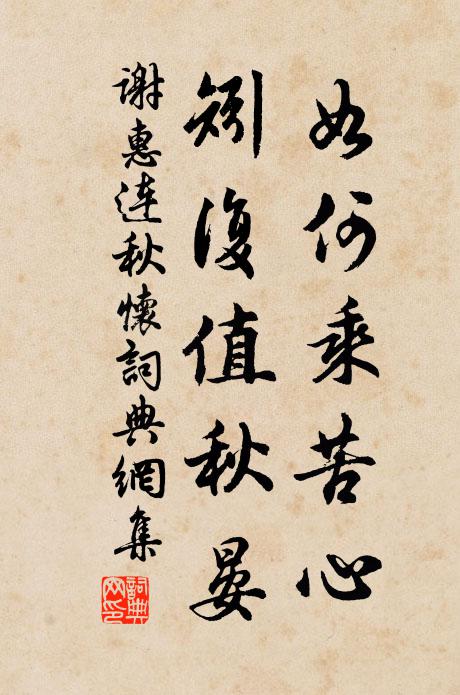 如何乘苦心
矧復值秋晏
謝惠連秋懷詞典網集
詞典網印